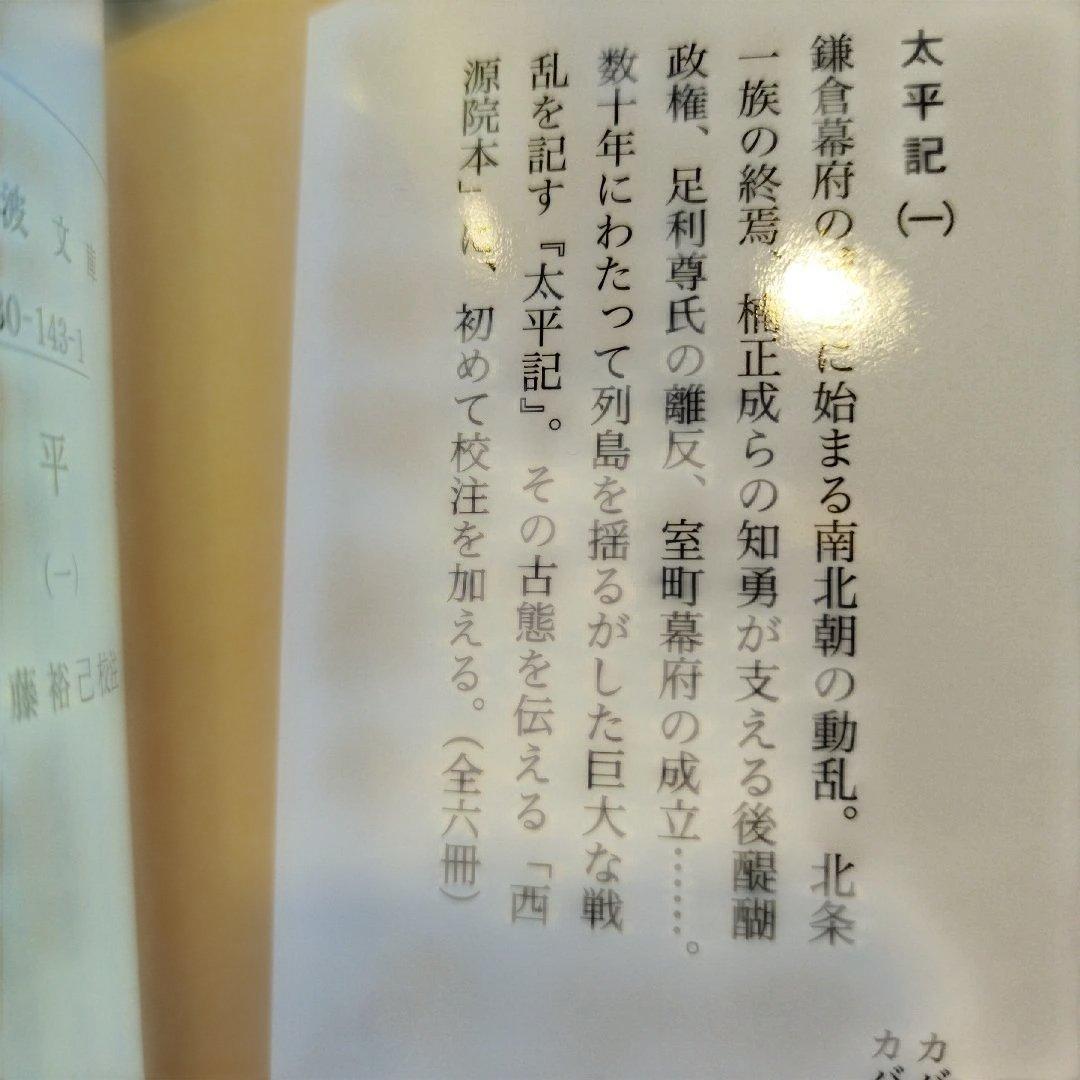 太平記(一)
鎌倉幕府の に始まる南北朝の動乱。北条
一族の終焉、楠正成らの知勇が支える後醍醐
政権、足利尊氏の離反、室町幕府の成立……。
数十年にわたって列島を揺るがした巨大な戦
乱を記す『太平記』。その古態を伝える「西
源院本」 、初めて校注を加える。(全六冊)
カバ
カバ
波文庫
30-143-1
平(一)
藤裕己校注